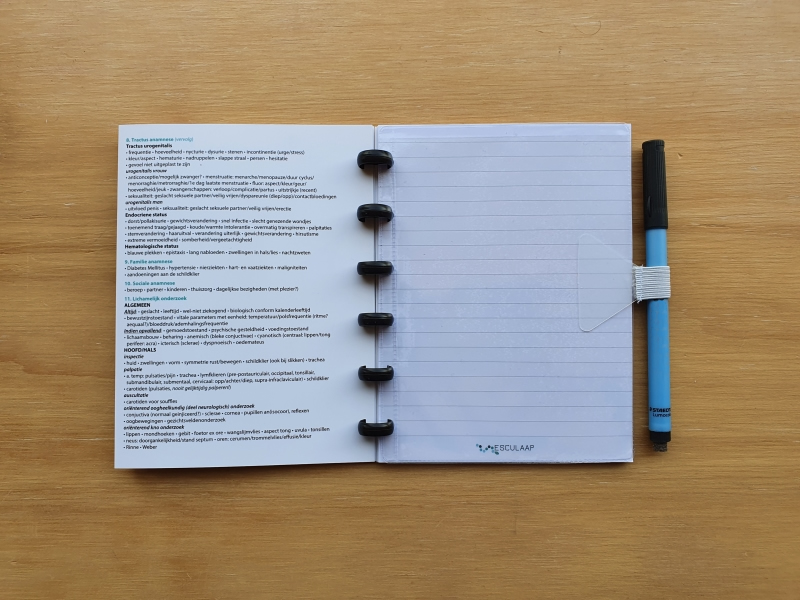 8. Tractus anamnese (vervolg)
Tractus urogenitalis
• frequentie • hoeveelheid • nycturie • dysurie • stenen • incontinentie (urge/stress)
• kleur/aspect • hematurie • nadruppelen • slappe straal • persen • hesitatie
• gevoel niet uitgeplast te zijn
urogenitalis vrouw
• anticonceptie/mogelijk zwanger? • menstruatie: menarche/menopauze/duur cyclus/
menorraghie/metrorraghie/1e dag laatste menstruatie • fluor: aspect/kleur/geur/
hoeveelheid/jeuk • zwangerschappen: verloop/complicatie/partus • uitstrijkje (recent)
• seksualiteit: geslacht seksuele partner/veilig vrijen/dyspareunie (diep/opp)/contactbloedingen
urogenitalis man
• uitvloed penis • seksualiteit: geslacht seksuele partner/veilig vrijen/erectie
Endocriene status
• dorst/pollakisurie • gewichtsverandering • snel infectie • slecht genezende wondjes
• toenemend traag/gejaagd • koude/warmte intolerantie • overmatig transpireren • palpitaties
• stemverandering • haaruitval • verandering uiterlijk • gewichtsverandering • hirsutisme
• extreme vermoeidheid • somberheid/vergeetachtigheid
Hematologische status
• blauwe plekken • epistaxis • lang nabloeden • zwellingen in hals/lies • nachtzweten
9. Familie anamnese
• Diabetes Mellitus • hypertensie • nierziekten • hart- en vaatziekten • maligniteiten
• aandoeningen aan de schildklier
10. Sociale anamnese
• beroep • partner • kinderen • thuiszorg • dagelijkse bezigheden (met plezier?)
11. Lichamelijk onderzoek
ALGEMEEN
Altijd • geslacht • leeftijd • wel-niet ziekogend • biologisch conform kalenderleeftijd
• bewustzijnstoestand • vitale parameters met eenheid: temperatuur/polsfrequentie (ritme?
aequaal?)/bloeddruk/ademhalingsfrequentie
Indien opvallend • gemoedstoestand • psychische gesteldheid • voedingstoestand
• lichaamsbouw • beharing • anemisch (bleke conjuctivae) • cyanotisch (centraal: lippen/tong
perifeer: acra) • icterisch (sclerae) • dyspnoeïsch • oedemateus
HOOFD/HALS
inspectie
• huid • zwellingen • vorm • symmetrie rust/bewegen • schildklier (ook bij slikken) • trachea
palpatie
• a. temp: pulsaties/pijn • trachea • lymfklieren (pre-postauriculair, occipitaal, tonsillair,
submandibulair, submentaal, cervicaal: opp/achter/diep, supra infraclaviculair) • schildklier
• carotiden (pulsaties, nooit gelijktijdig palperen!)
auscultatie
• carotiden voor souffles
oriënterend oogheelkundig (deel neurologisch) onderzoek
• conjuctiva (normaal geïnjiceerd?) • sclerae • cornea • pupillen an(isocoor), reflexen
• oogbewegingen • gezichtsveldenonderzoek
oriënterend kno onderzoek
• lippen • mondhoeken • gebit • foetor ex ore • wangslijmvlies • aspect tong • uvula • tonsillen
• neus: doorgankelijkheid/stand septum • oren: cerumen/trommelvlies/effusie/kleur
• Rinne • Weber
ESCULAAP